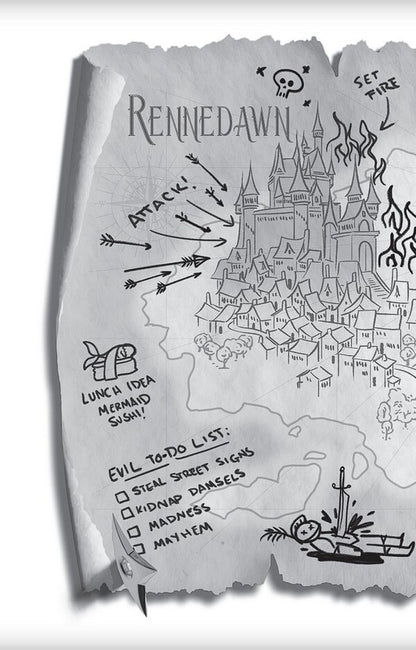 SET
FIRE
RENNEDAWN
ATTACK!
LUNCH IDEA
MERMAID
SUSHI!
EVIL TO-DO LIST:
STEAL STREET SIGNS
KIDNAP DAMSELS
MADNESS
MAYHEM